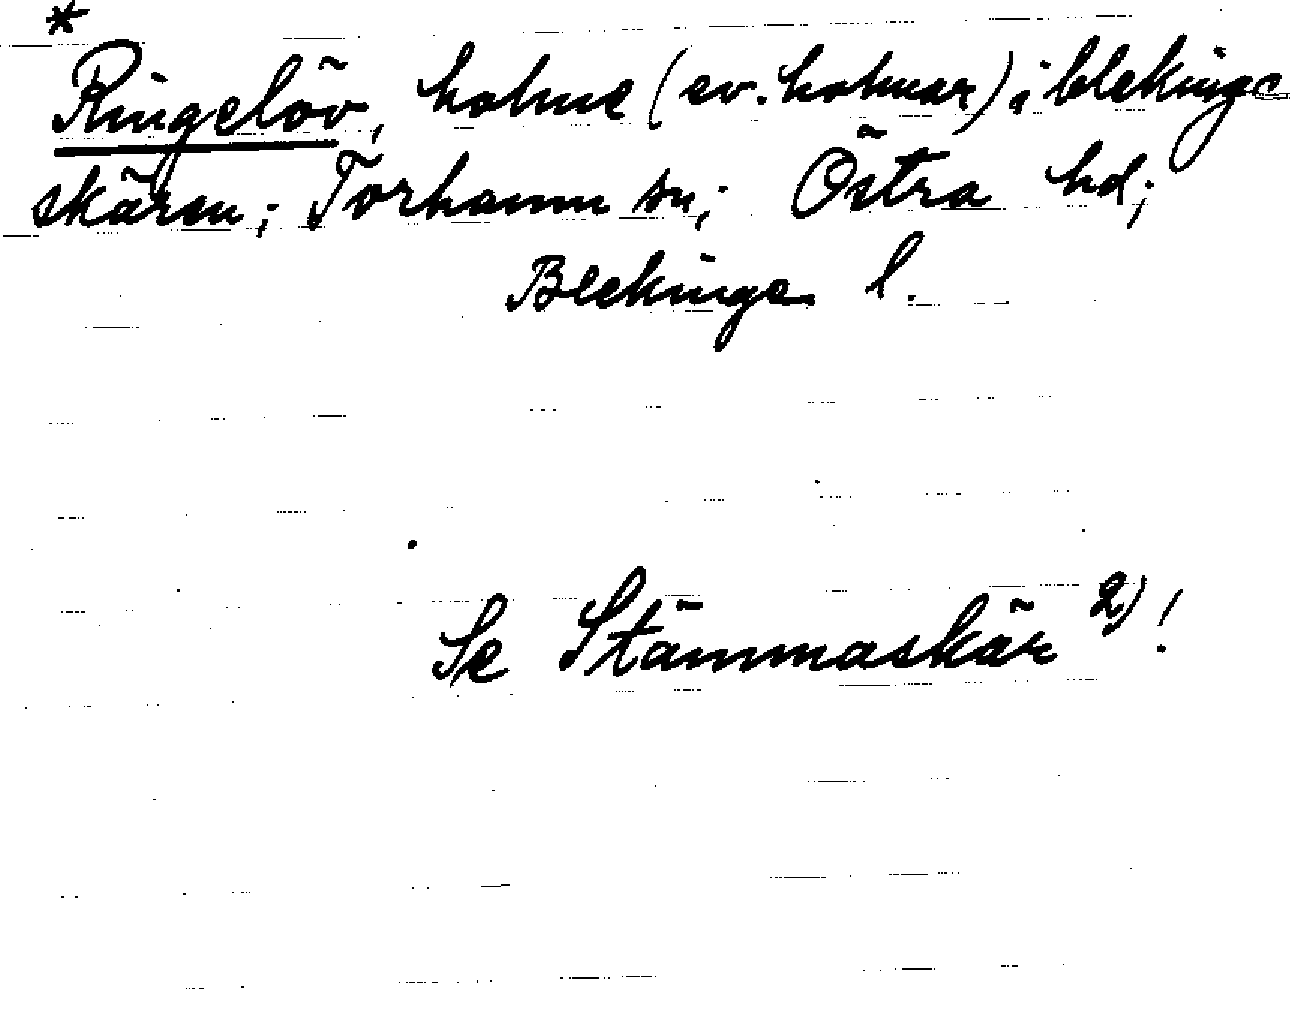 *
Ringelöv, holme (ev. holmar) i blekinge
skären; Torhamn sn; Östra hd;
Blekinge l.
Se Stämmaskär 2)!